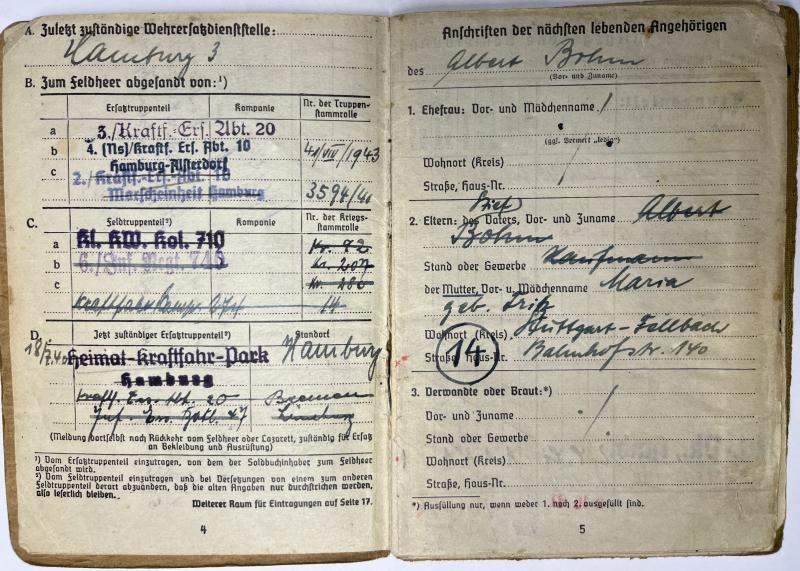 A. Zuletzt zuständige Wehrersatzdienststelle:
Hamburg 3
B. Zum Feldheer abgesandt von:¹)
Ersatztruppenteil Kompanie Nr. der Truppen-
stammrolle
a 3./Kraftf.-Ers. Abt. 20
b 4. (Ns) Kraftf. Ers. Abt. 10 41/VIII/1943
Hamburg-Alsterdorf
c 2./Kraftf.-Ers.-Abt. 10
Marscheinheit Hamburg 3594/40
C. Feldtruppenteil²) Kompanie Nr. der Kriegs-
stammrolle
a Kl. KW. Kol. 710
b 6./Inf. Regt. 740 Nr. 207
c
D. Jetzt zuständiger Ersatztruppenteil²) Standort
Heimat-Kraftfahr-Park Hamburg
Hamburg
Kraftf. Ers. Abt. 20 Bremen
Lüneburg
(Meldung dortselbst nach Rückkehr vom Feldheer oder Lazarett, zuständig für Ersatz
an Bekleidung und Ausrüstung)
¹) Vom Ersatztruppenteil einzutragen, von dem der Soldbuchinhaber zum Feldheer
abgesandt wird.
²) Vom Feldtruppenteil einzutragen und bei Versetzungen von einem zum anderen
Feldtruppenteil derart abzuändern, daß die alten Angaben nur durchstrichen werden,
also leserlich bleiben.
Weiterer Raum für Eintragungen auf Seite 17.
4
Anschriften der nächsten lebenden Angehörigen
des Albert Bohm
(Vor- und Zuname)
1. Ehefrau: Vor- und Mädchenname
(ggf. Vermerk „ledig")
Wohnort (Kreis)
Straße, Haus-Nr.
Stief
2. Eltern: des Vaters, Vor- und Zuname Albert
Bohm
Stand oder Gewerbe Kaufmann
der Mutter, Vor- u. Mädchenname Maria
geb.
Wohnort (Kreis) Stuttgart-Fellbach
Straße, Haus-Nr. Bahnhofstr. 140
14
3. Verwandte oder Braut:*)
Vor- und Zuname
Stand oder Gewerbe
Wohnort (Kreis)
Straße, Haus-Nr.
*) Ausfüllung nur, wenn weder 1. noch 2. ausgefüllt sind.
5